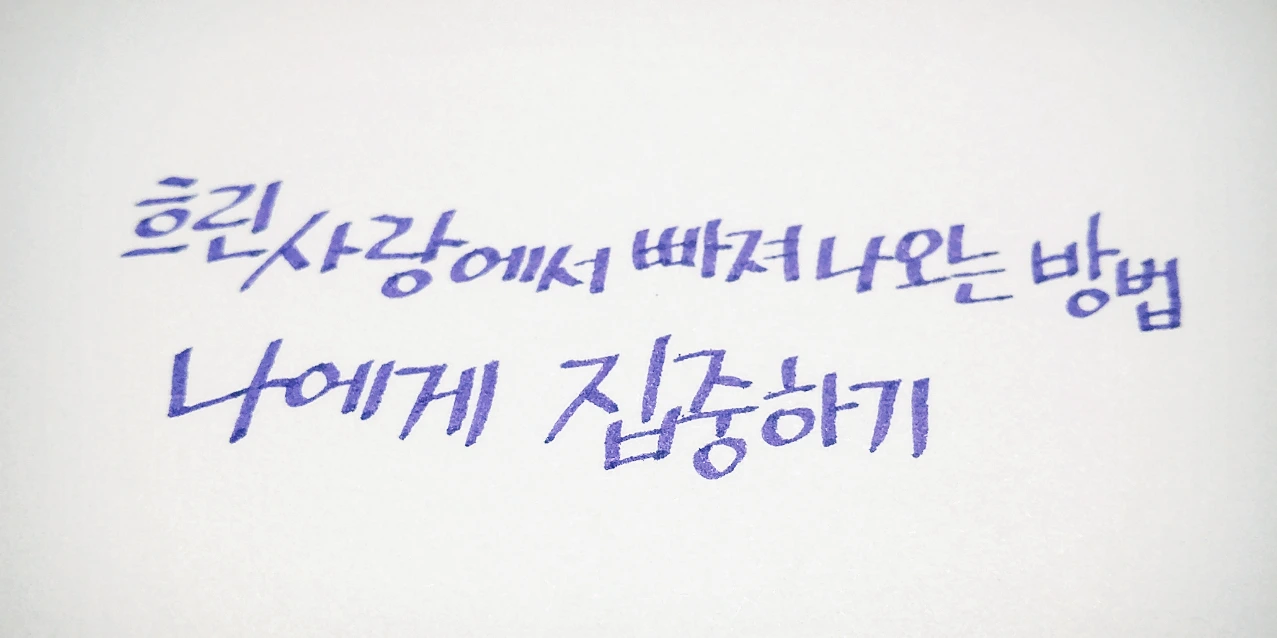 흐린 사랑에서 빠져 나오는 방법
나에게 집중하기